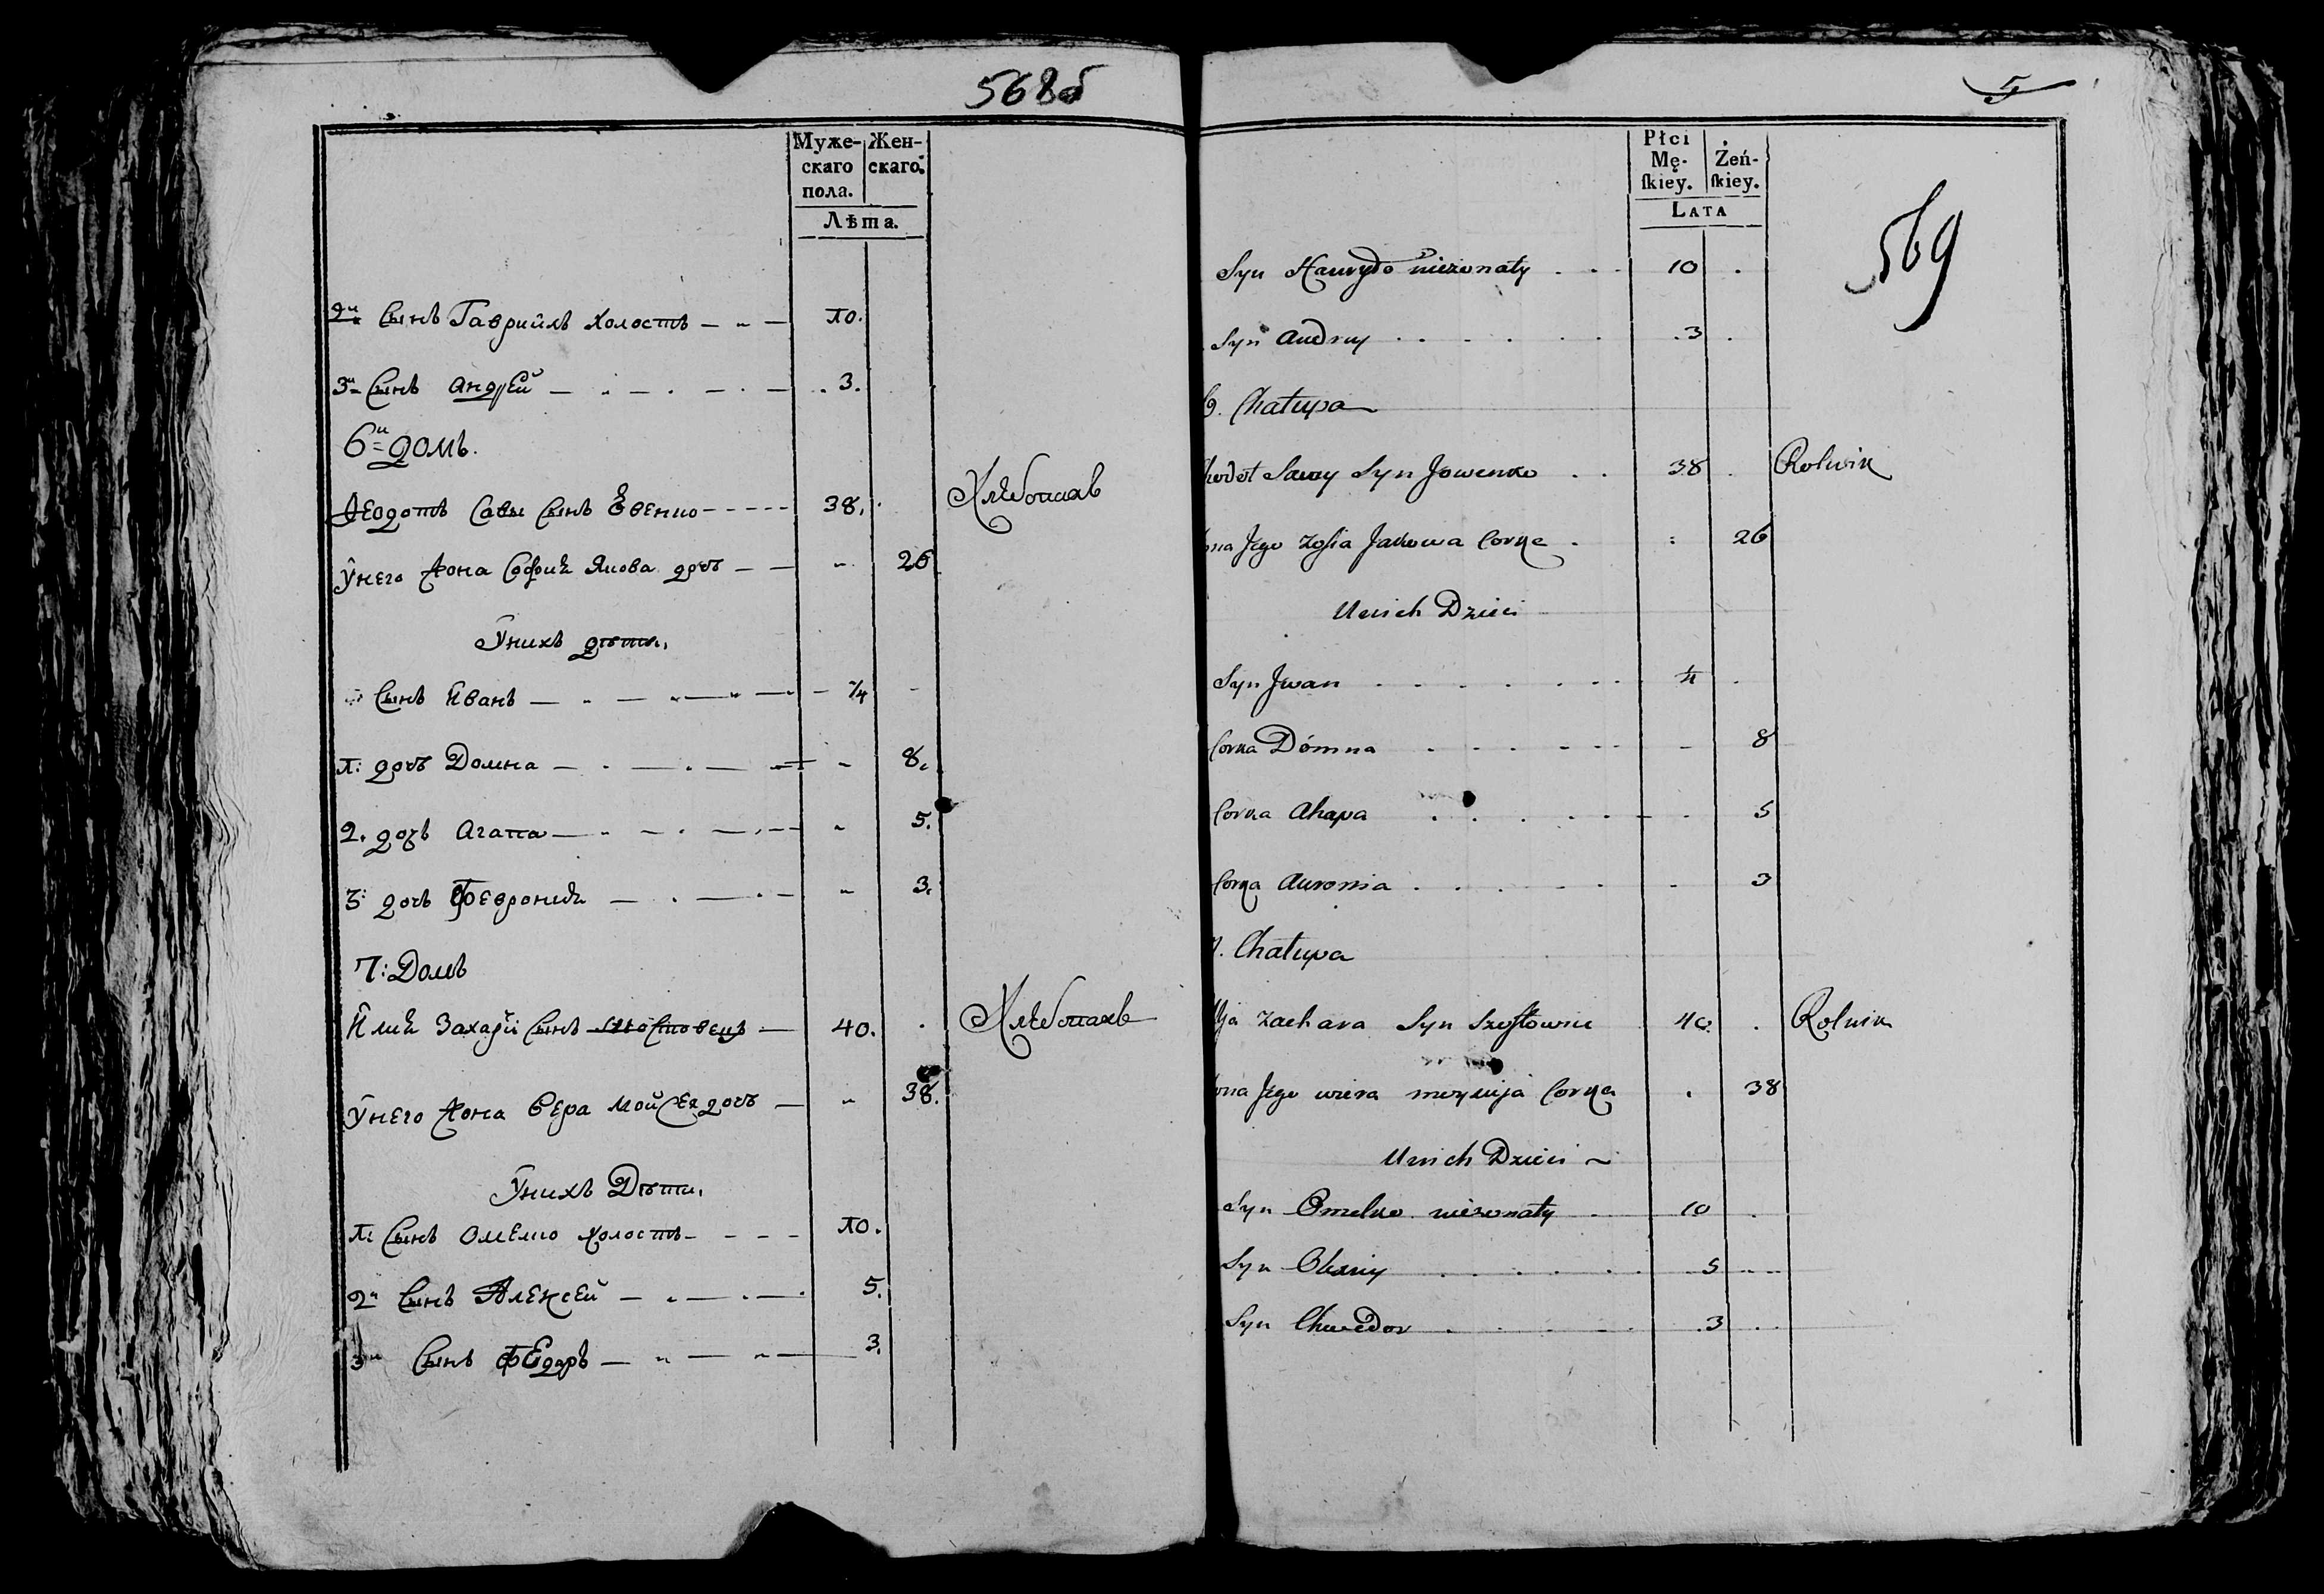 568б
Муже-
скаго
пола.
Жен-
скаго.
Лѣта.
2й Сынъ Гавриилъ холостъ 10.
3й Сынъ андрей 3.
6й домъ.
Ѳеодотъ Савы Сынъ Евенко 38. Хлебопахъ
Унего жона София Якова дочъ 26
Унихъ дѣти.
Сынъ Иванъ 1/4
1: дочъ Домна 8.
2. дочъ Агапа 5.
3: дочъ Феврония 3.
7: Домъ
Илия Захарiй Сынъ 40. Хлебопахъ
Унего жона Вера Мойсея дочъ 38.
Унихъ Дѣти.
1: Сынъ Омелко холостъ 10.
2й Сынъ Алексей 5.
3й Сынъ Федоръ 3.
5
569
Płci
Mę-
ſkiey.
Żeń-
ſkiey.
LATA
Syn Hawryło niezonaty 10
Syn Andruy 3
6. Chałupa
Chodot Sawy Syn Jowenko 38 Rolnik
ona Jego Zofia Jakowa Corka 26
Unich Dzieci
Syn Jwan 1/4
Corka Dómna 8
Corka Ahapa 5
Corka Auronia 3
7. Chałupa
Ilja Zachara Syn 40 Rolnik
ona Jego wiera Corka 38
Unich Dzieci
Syn Omelko niezonaty 10
Syn Olexiy 5
Syn Chwedor 3